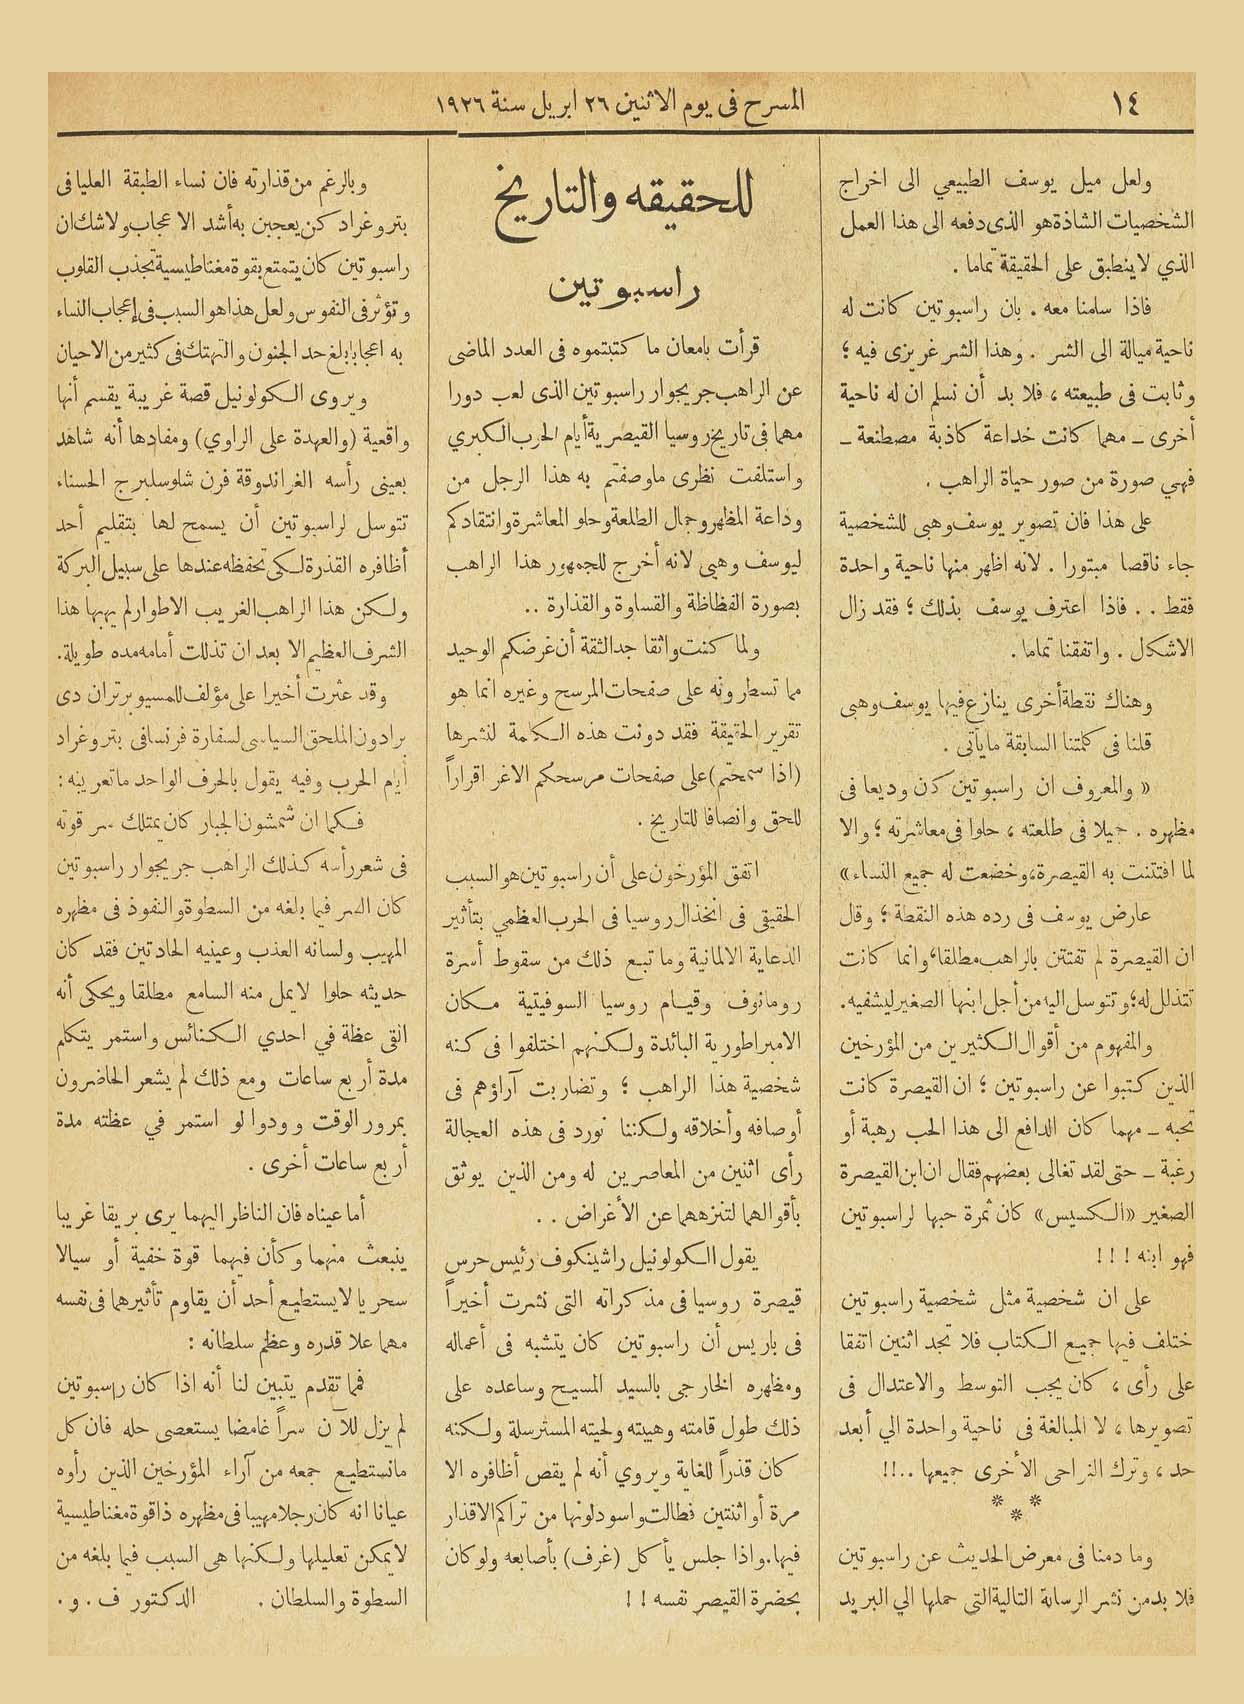 ١٤
المسرح فى يوم الاثنين ٢٦ ابريل سنة ١٩٢٦
ولعل ميل يوسف الطبيعي الى اخراج
الشخصيات الشاذة هو الذى دفعه الى هذا العمل
الذي لا ينطبق على الحقيقة تماما .
فاذا سلمنا معه . بان راسبوتين كانت له
ناحية ميالة الى الشر . وهذا الشر غريزى فيه ؛
وثابت فى طبيعته ، فلا بد أن نسلم ان له ناحية
أخرى ــ مهما كانت خداعة كاذبة مصطنعة ــ
فهي صورة من صور حياة الراهب .
على هذا فان تصوير يوسف وهبى للشخصية
جاء ناقصا مبتورا . لانه اظهر منها ناحية واحدة
فقط . . فاذا اعترف يوسف بذلك ؛ فقد زال
الاشكال . واتفقنا تماما .
وهناك نقطة أخرى ينازع فيها يوسف وهبى
قلنا فى كلمتنا السابقة مايأتى .
« والمعروف ان راسبوتين كان وديعا فى
مظهره . جميلا فى طلعته ، حلوا فى معاشرته ؛ والا
لما افتتنت به القيصرة ، وخضعت له جميع النساء »
عارض يوسف فى رده هذه النقطة ؛ وقال
ان القيصرة لم تفتتن بالراهب مطلقا ؛ وانما كانت
تتذلل له ؛ وتتوسل اليه من أجل ابنها الصغير ليشفيه .
والمفهوم من أقوال الكثيرين من المؤرخين
الذين كتبوا عن راسبوتين ؛ ان القيصرة كانت
تحبه ــ مهما كان الدافع الى هذا الحب رهبة أو
رغبة ــ حتى لقد تغالى بعضهم فقال ان ابن القيصرة
الصغير « الكسيس » كان ثمرة حبها لراسبوتين
فهو ابنه ! ! !
على ان شخصية مثل شخصية راسبوتين
ختلف فيها جميع الكتاب فلا تجد اثنين اتفقا
على رأى ، كان يجب التوسط والاعتدال فى
تصويرها ، لا المبالغة فى ناحية واحدة الي أبعد
حد ، وترك النراحى الأخرى جميعها ..!!
* * *
وما دمنا فى معرض الحديث عن راسبوتين
فلا بد من نشر الرسالة التالية التى حملها الي البريد
للحقيقه والتاريخ
راسبوتين
قرأت بامعان ما كتبتموه فى العدد الماضى
عن الراهب جريجوار راسبوتين الذى لعب دورا
مهما فى تاريخ روسيا القيصرية أيام الحرب الكبري
واستلفت نظرى ما وصفتم به هذا الرجل من
وداعة المظهر وجمال الطلعة وحلو المعاشرة وانتقادكم
ليوسف وهبى لانه أخرج للجمهور هذا الراهب
بصورة الفظاظة والقساوة والقذارة ..
ولما كنت واثقا جد الثقة أن غرضكم الوحيد
مما تسطرونه على صفحات المرسح وغيره انما هو
تقرير الحقيقة فقد دونت هذه الكلمة لنشرها
(اذا سمحتم) على صفحات مرسحكم الاغر اقراراً
للحق وانصافا للتاريخ .
اتفق المؤرخون على أن راسبوتين هو السبب
الحقيقى فى انخذال روسيا فى الحرب العظمي بتأثير
الدعاية الالمانية وما تبع ذلك من سقوط أسرة
رومانوف وقيام روسيا السوفيتية مكان
الامبراطورية البائدة ولكنهم اختلفوا فى كنه
شخصية هذا الراهب ؛ وتضاربت آراؤهم فى
أوصافه وأخلاقه ولكننا نورد فى هذه العجالة
رأى اثنين من المعاصرين له ومن الذين يوثق
بأقوالهما لتنزههما عن الأغراض . .
يقول الكولونيل راشينكوف رئيس حرس
قيصرة روسيا فى مذكراته التى نشرت أخيراً
فى باريس أن راسبوتين كان يتشبه فى أعماله
ومظهره الخارجى بالسيد المسيح وساعده على
ذلك طول قامته وهيبته ولحيته المسترسلة ولكنه
كان قذراً للغاية ويروي أنه لم يقص أظافره الا
مرة أو اثنتين فطالت واسود لونها من تراكم الاقذار
فيها . واذا جلس يأكل (غرف) بأصابعه ولو كان
بحضرة القيصر نفسه ! !
وبالرغم من قذارته فان نساء الطبقة العليا فى
بتروغراد كن يعجبن به أشد الاعجاب ولا شك ان
راسبوتين كان يتمتع بقوة مغناطيسية تجذب القلوب
وتؤثر فى النفوس ولعل هذا هو السبب فى إعجاب النساء
به اعجابا بلغ حد الجنون والتهتك فى كثير من الاحيان
ويروى الكولونيل قصة غريبة يقسم أنها
واقعية (والعهدة على الراوي) ومفادها أنه شاهد
بعينى رأسه الغراندوقة فرن شلوسلبرج الحسناء
تتوسل لراسبوتين أن يسمح لها بتقليم أحد
أظافره القذرة لكى تحفظه عندها على سبيل البركة
ولكن هذا الراهب الغريب الاطوار لم يهبها هذا
الشرف العظيم الا بعد ان تذللت أمامه مده طويلة .
وقد عثرت أخيرا على مؤلف للمسيو برتران دى
برادون الملحق السياسى لسفارة فرنسا فى بتروغراد
أيام الحرب وفيه يقول بالحرف الواحد ما تعريبه :
فكما ان شمشون الجبار كان يمتلك سر قوته
فى شعر رأسه كذلك الراهب جريجوار راسبوتين
كان السر فيما بلغه من السطوة والنفوذ فى مظهره
المهيب ولسانه العذب وعينيه الحادتين فقد كان
حديثه حلوا لا يمل منه السامع مطلقا ويحكى أنه
القى عظة في احدي الكنائس واستمر يتكلم
مدة أربع ساعات ومع ذلك لم يشعر الحاضرون
بمرور الوقت وودوا لو استمر في عظته مدة
أربع ساعات أخرى .
أما عيناه فان الناظر اليهما يرى بريقا غريبا
ينبعث منهما وكأن فيهما قوة خفية أو سيالا
سحريا لا يستطيع أحد أن يقاوم تأثيرهما فى نفسه
مهما علا قدره وعظم سلطانه :
فمما تقدم يتبين لنا أنه اذا كان راسبوتين
لم يزل للآن سراً غامضا يستعصى حله فان كل
مانستطيع جمعه من آراء المؤرخين الذين رأوه
عيانا انه كان رجلا مهيبا فى مظهره ذا قوة مغناطيسية
لا يمكن تعليلها ولكنها هى السبب فيما بلغه من
السطوة والسلطان . الدكتور ف . و .